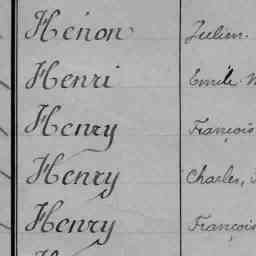 Hénon Julien.
Henri Emile
Henry François
Henry Charles,
Henry François